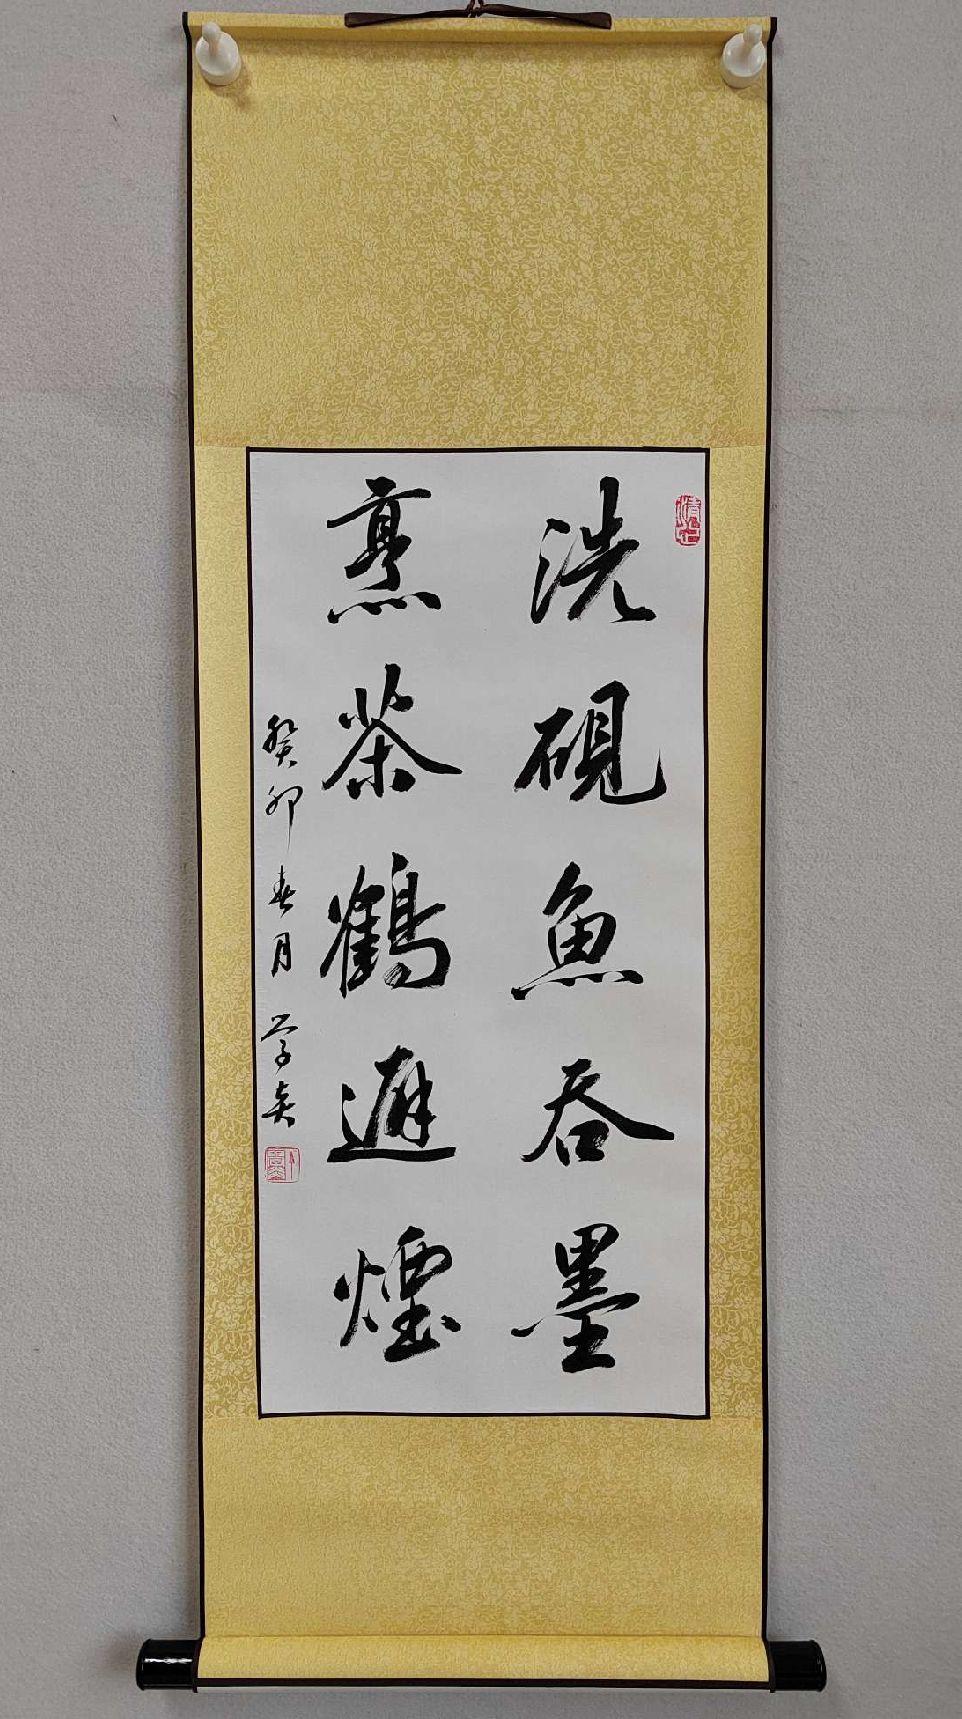 洗硯魚吞墨
烹茶鶴避煙
癸卯春月學奕